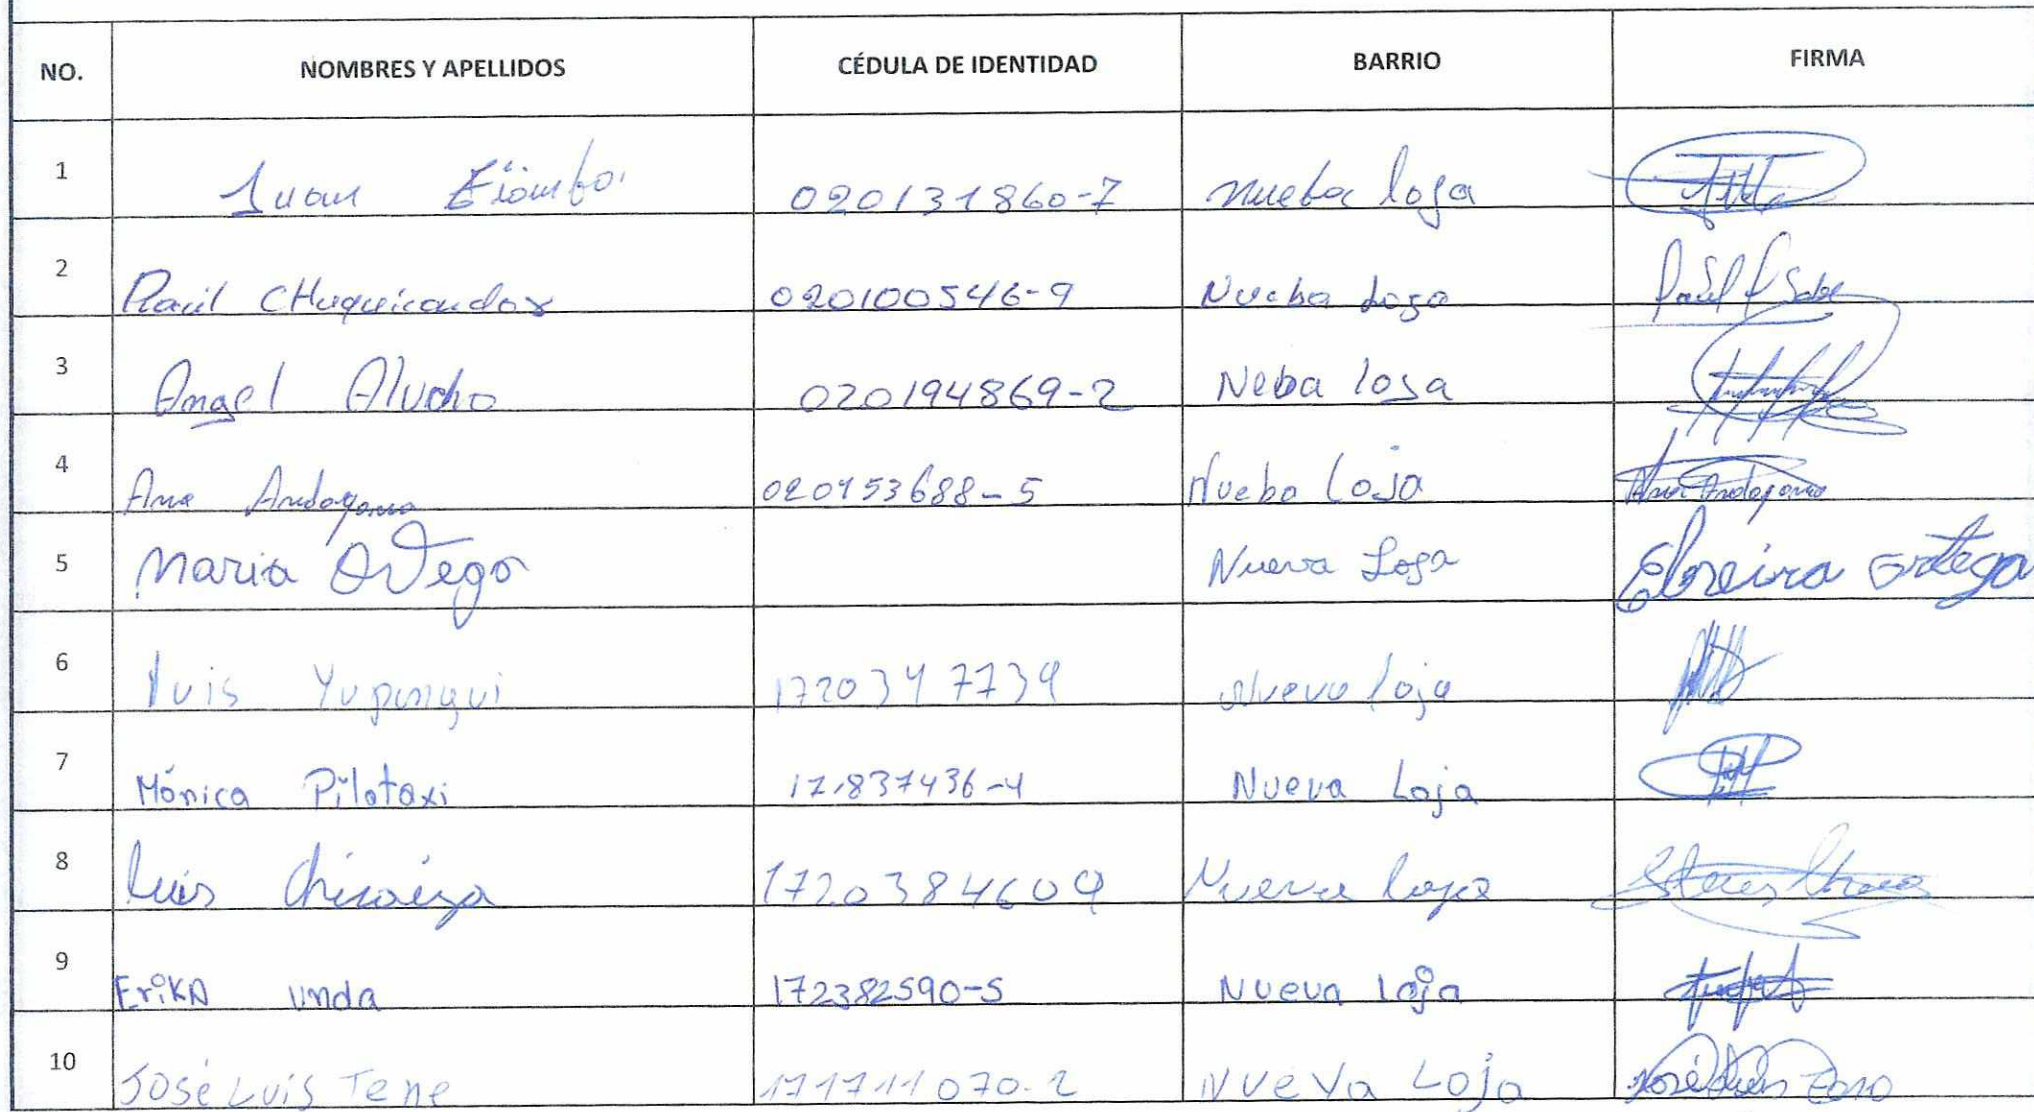 NO. NOMBRES Y APELLIDOS CÉDULA DE IDENTIDAD BARRIO FIRMA
1 Juan 020131860-7 nueba loja
2 Raúl CHuquicondor 020100546-9 Nueba Loja
3 Angel Alucho 020194869-2 Neba loja
4 Ana Andagana 020153688-5 Nueba Loja Ana Andagana
5 Maria Ortega Nueva Loja Eloreira Ortega
6 luis Yupangui 1720347739 Nueva loja
7 Mónica Pilataxi 171837436-4 Nueva Loja
8 Luis Chicaiza 1720384609 Nueva loja
9 EriKA unda 172382590-5 Nueva loja
10 José Luis Tene 171711070-2 Nueva Loja José Luis Tene